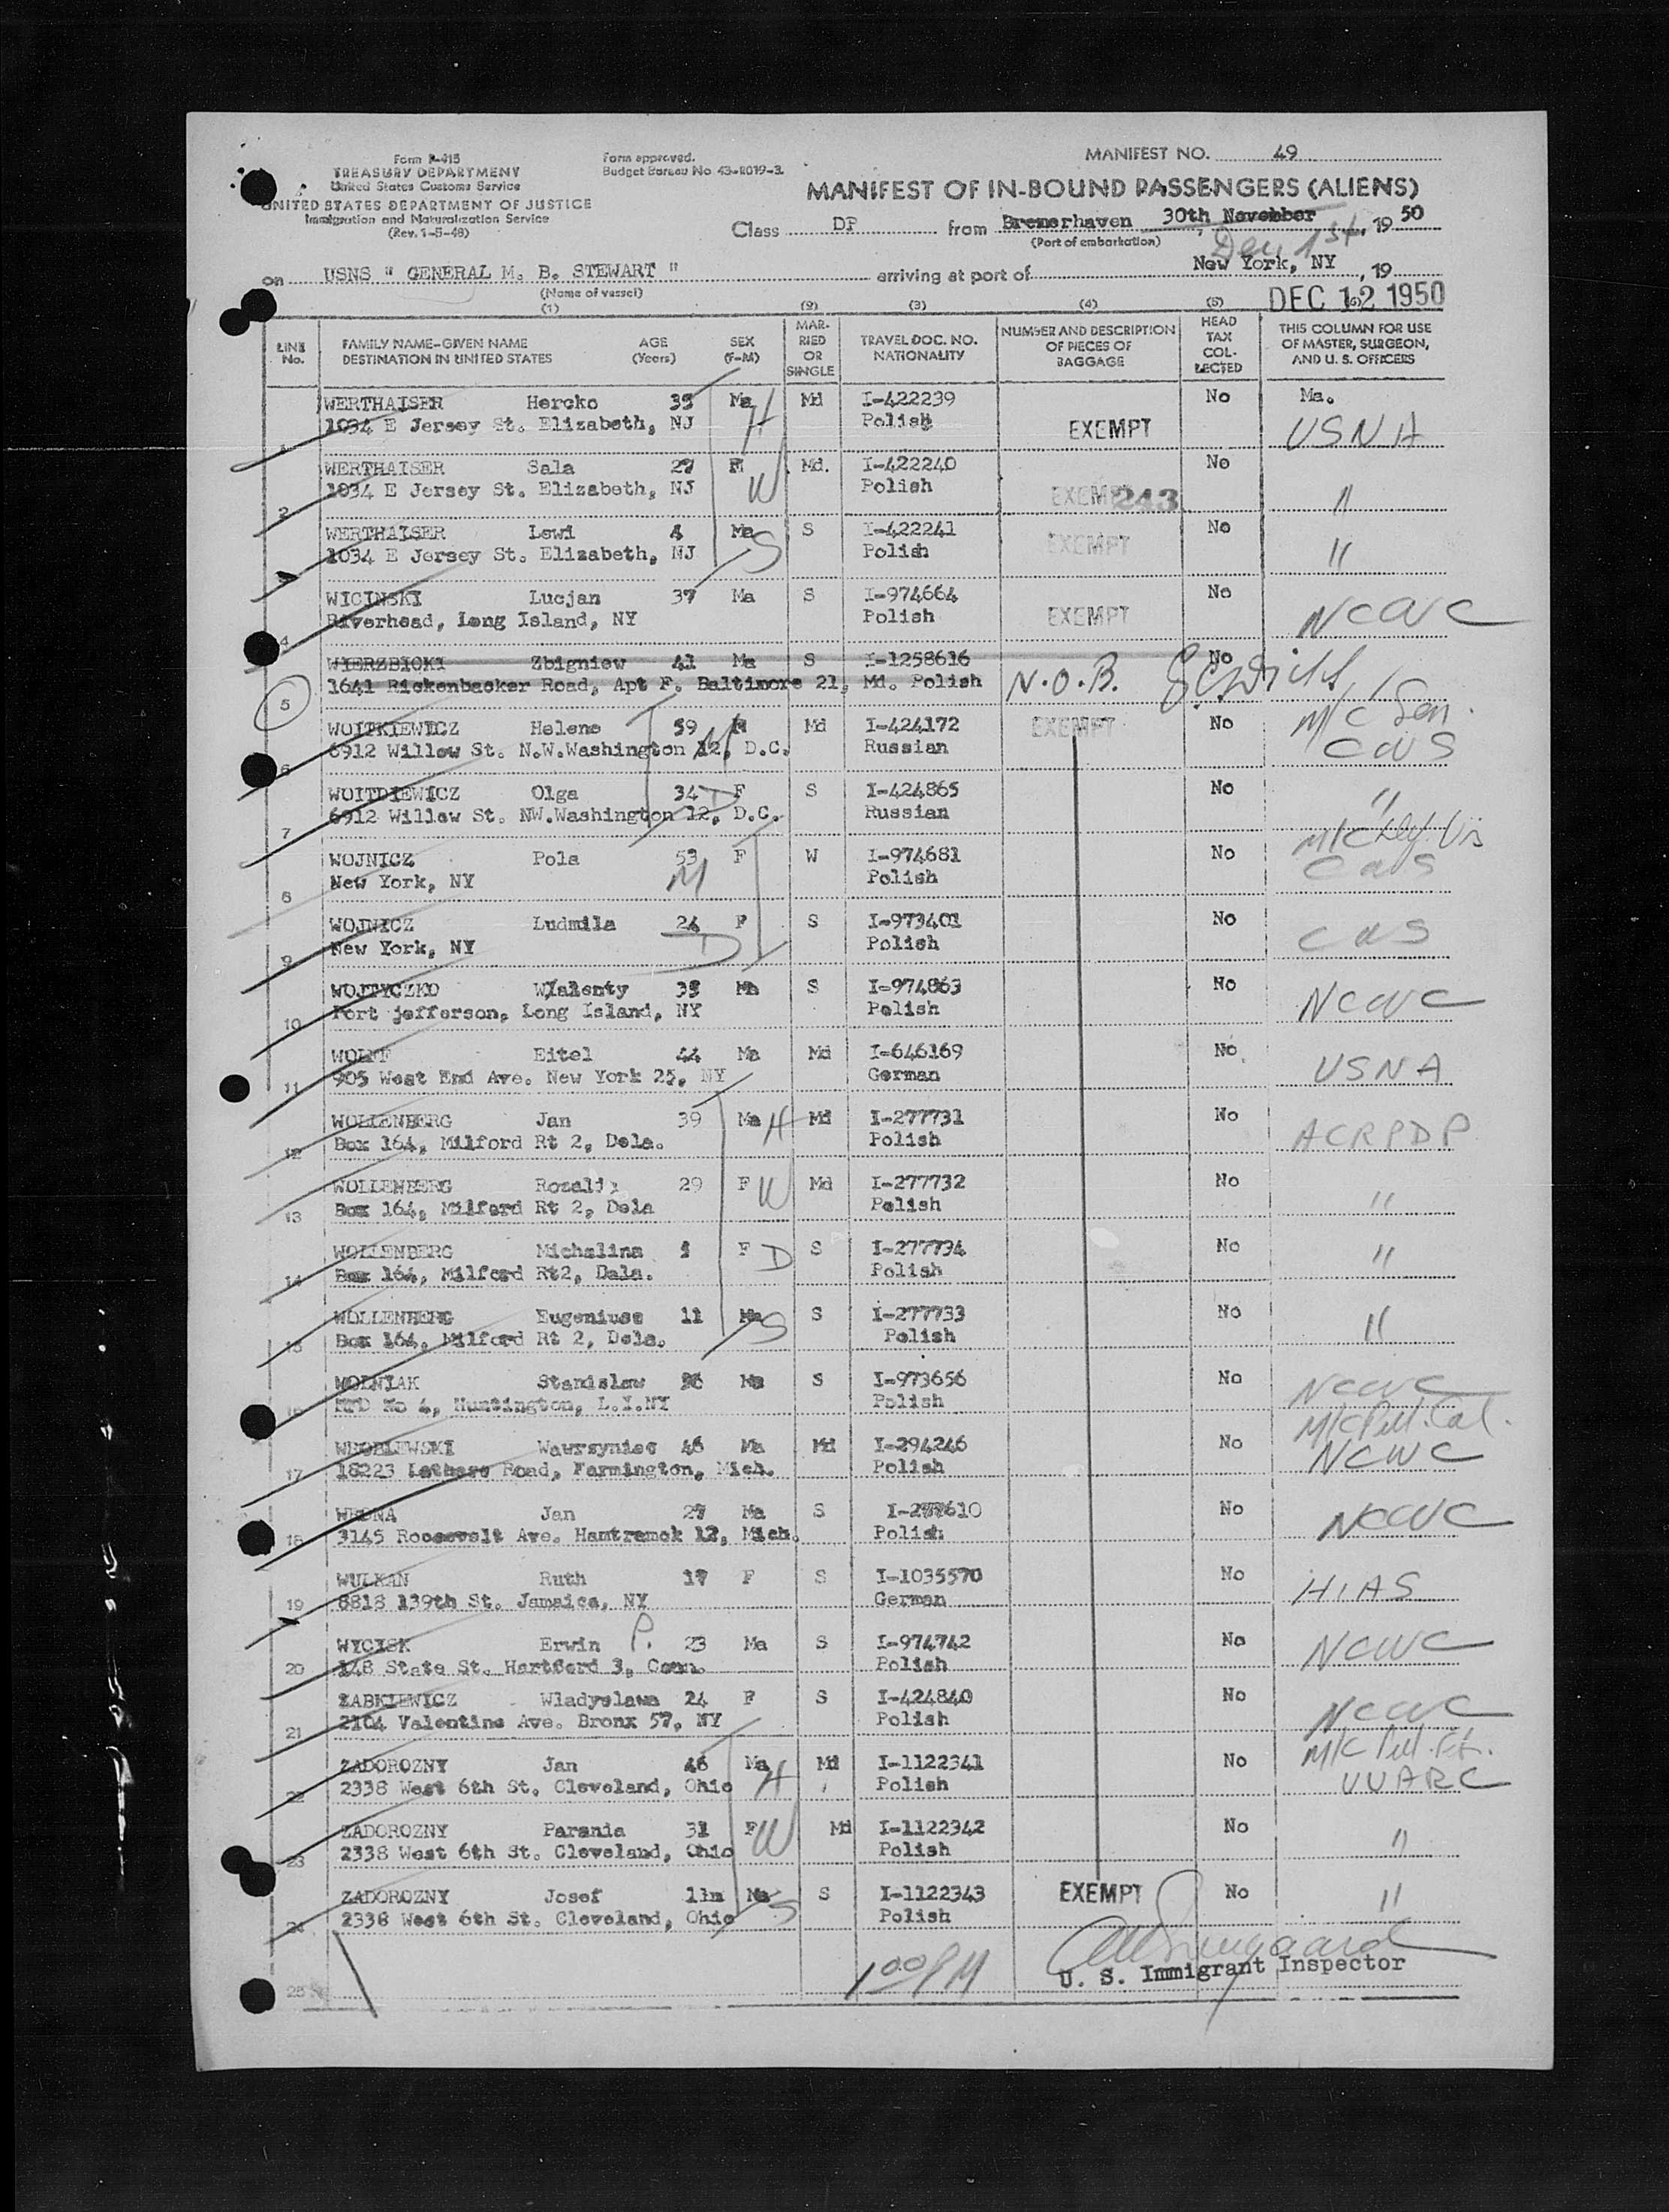 Form P-415
TREASURY DEPARTMENT
United States Customs Service
UNITED STATES DEPARTMENT OF JUSTICE
Immigration and Naturalization Service
(Rev. 1-5-48)
Form approved.
Budget Bureau No. 43-R019-3.
MANIFEST NO. 49
MANIFEST OF IN-BOUND PASSENGERS (ALIENS)
Class DP from Bremerhaven 30th November, 1950
(Port of embarkation) Dec 1st
on USNS " GENERAL M. B. STEWART " arriving at port of New York, NY, 19
(Name of vessel) DEC 12 1950
(1) (2) (3) (4) (5) (6)
LINE No. FAMILY NAME-GIVEN NAME DESTINATION IN UNITED STATES AGE (Years) SEX (F-M) MARRIED OR SINGLE TRAVEL DOC. NO. NATIONALITY NUMBER AND DESCRIPTION OF PIECES OF BAGGAGE HEAD TAX COLLECTED THIS COLUMN FOR USE OF MASTER, SURGEON, AND U. S. OFFICERS
WERTHAISER Hercko Ma H Md I-422239 No Ma.
1 1034 E Jersey St. Elizabeth, NJ Polish EXEMPT USNA
WERTHAISER Sala 27 F Md. I-422240 No
2 1034 E Jersey St. Elizabeth, NJ W Polish EXEMPT 243 "
WERTHAISER Lewi 4 Ma S I-422241 No
1034 E Jersey St. Elizabeth, NJ S Polish EXEMPT "
WICINSKI Lucjan 37 Ma S I-974664 No
4 Riverhead, Long Island, NY Polish EXEMPT NCWC
WIERZBICKI Zbigniew 41 Ma S I-1258616 No
5 1641 Rickenbacker Road, Apt F. Baltimore 21, Md. Polish N.O.B.
WOITKIEWICZ Helene 59 F Md I-424172 EXEMPT No M/C Sen.
6 6912 Willow St. N.W.Washington 12, D.C. M Russian CWS
WOITDIEWICZ Olga 34 D F S I-424865 No "
7 6912 Willow St. NW.Washington 12, D.C. Russian
WOJNICZ Pola 53 F W I-974681 No M/C Def. Vis
8 New York, NY M Polish CWS
WOJNICZ Ludmila 24 F S I-973401 No
9 New York, NY D Polish CWS
WOJTYCZKO Walenty Ma S I-974863 No
10 Port jefferson, Long Island, NY Polish NCWC
WOLFF Eitel 44 Ma Md I-646169 No
11 905 West End Ave. New York 25, NY German USNA
WOLLENBERG Jan 39 Ma H Md I-277731 No
12 Box 164, Milford Rt 2, Dela. Polish ACRPDP
WOLLENBERG Rozalia 29 F W Md I-277732 No
13 Box 164, Milford Rt 2, Dela Polish "
WOLLENBERG Michalina F D S I-277734 No
14 Box 164, Milford Rt2, Dela. Polish "
WOLLENBERG Eugeniusz 11 Ma S I-277733 No
15 Box 164, Milford Rt 2, Dela. S Polish "
WOLNIAK Stanislaw Ma S I-973656 No NCWC
16 RFD No 4, Huntington, L.I.NY Polish
WROBLEWSKI Wawrzyniec 46 Ma Md I-294246 No
17 18223 Road, Farmington, Mich. Polish NCWC
WRONA Jan 27 Ma S I-277610 No
18 3145 Roosevelt Ave. Hamtramck 12, Mich. Polish NCWC
WULKAN Ruth 17 F S I-1035570 No
19 8818 139th St. Jamaica, NY German HIAS
WYCISK Erwin P. 23 Ma S I-974742 No
20 148 State St. Hartford 3, Conn. Polish NCWC
ZABKIEWICZ Wladyslawa 24 F S I-424840 No
21 2104 Valentine Ave. Bronx 57, NY Polish NCWC
ZADOROZNY Jan 46 Ma Md I-1122341 No
22 2338 West 6th St. Cleveland, Ohio H Polish UUARC
ZADOROZNY Parania 31 F W Md I-1122342 No
23 2338 West 6th St. Cleveland, Ohio Polish "
ZADOROZNY Josef 11m Ma S I-1122343 EXEMPT No "
24 2338 West 6th St. Cleveland, Ohio S Polish
1 00 PM
25 U. S. Immigrant Inspector